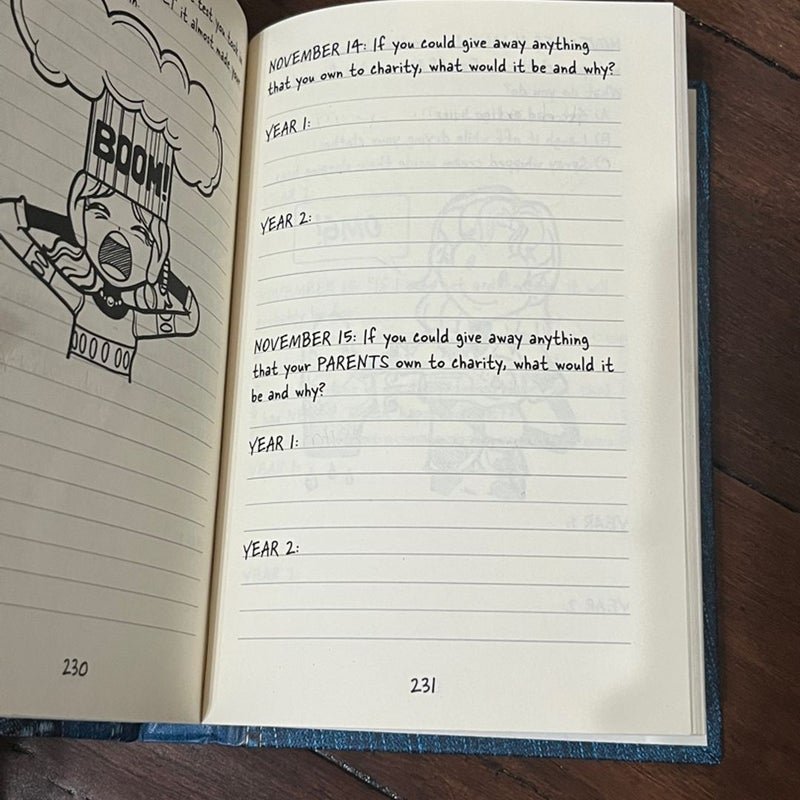 test you took in
it almost made your
BOOM!
230
NOVEMBER 14: If you could give away anything
that you own to charity, what would it be and why?
YEAR 1:
YEAR 2:
NOVEMBER 15: If you could give away anything
that your PARENTS own to charity, what would it
be and why?
YEAR 1:
YEAR 2:
231